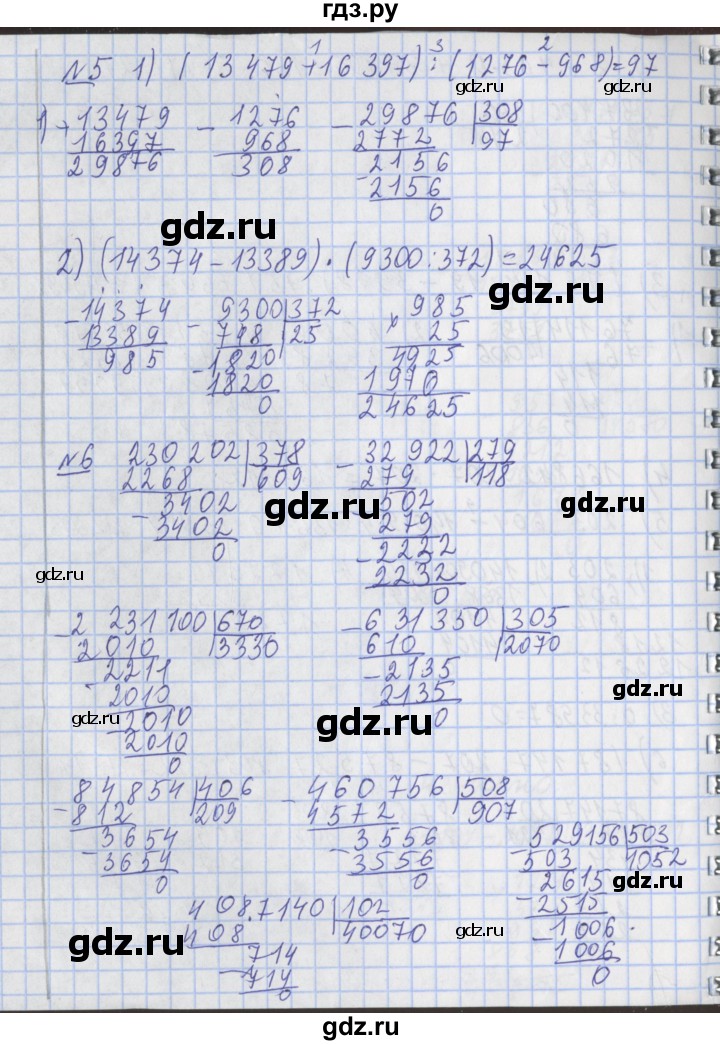 гдз.ру
№5 1) (13 479 + 16 397) : (1276 - 968) = 97
1 3 2
1) + 13479 - 1276 - 29876 | 308
16397 968 2772 97
29876 308 - 2156
2156
0
gdz.ru
2) (14374 - 13389) · (9300 : 372) = 24625
gdz.ru
- 14374 - 9300 | 372 × 985
13389 748 25 25
985 - 1820 4925
1820 1970
0 24625
№6 230 202 | 378 - 32 922 | 279
2268 609 279 118
- 3402 - 502
3402 279
0 - 2232
2232
0
gdz.ru
gdz.ru
gdz.ru
- 2 231 100 | 670 - 631350 | 305
2010 3330 610 2070
- 2211 - 2135
2010 2135
- 2010 0
2010
0
gdz.ru
gdz.ru
gdz.ru
- 84854 | 406 - 460 756 | 508
812 209 4572 907
- 3654 - 3556
3654 3556
0 0
- 529156 | 503
503 1052
2615
- 2515
- 1006
1006
0
gdz.ru
4087140 | 102
408 40070
714
- 714
0
gdz.ru
gdz.ru
gdz.ru
gdz.ru